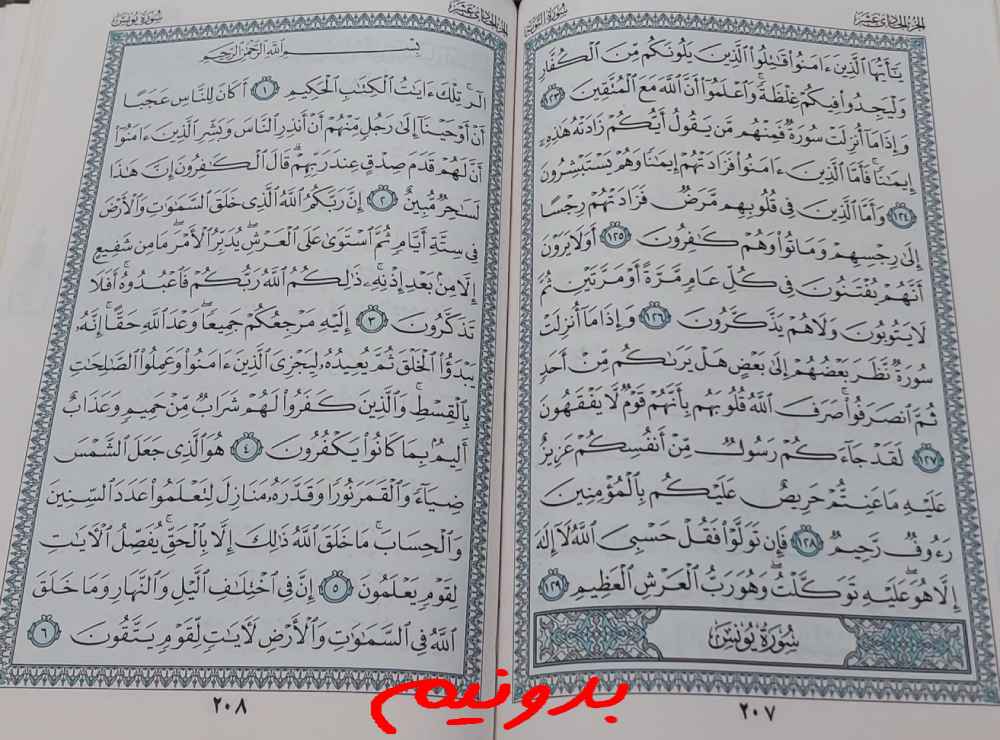 الجزء الحادي عشر
سورة التوبة
يَٰٓأَيُّهَا ٱلَّذِينَ ءَامَنُوا۟ قَٰتِلُوا۟ ٱلَّذِينَ يَلُونَكُم مِّنَ ٱلْكُفَّارِ
وَلْيَجِدُوا۟ فِيكُمْ غِلْظَةً ۚ وَٱعْلَمُوٓا۟ أَنَّ ٱللَّهَ مَعَ ٱلْمُتَّقِينَ ١٢٣
وَإِذَا مَآ أُنزِلَتْ سُورَةٌ فَمِنْهُم مَّن يَقُولُ أَيُّكُمْ زَادَتْهُ هَٰذِهِۦٓ
إِيمَٰنًا ۚ فَأَمَّا ٱلَّذِينَ ءَامَنُوا۟ فَزَادَتْهُمْ إِيمَٰنًا وَهُمْ يَسْتَبْشِرُونَ
١٢٤ وَأَمَّا ٱلَّذِينَ فِى قُلُوبِهِم مَّرَضٌ فَزَادَتْهُمْ رِجْسًا
إِلَىٰ رِجْسِهِمْ وَمَاتُوا۟ وَهُمْ كَٰفِرُونَ ١٢٥ أَوَلَا يَرَوْنَ
أَنَّهُمْ يُفْتَنُونَ فِى كُلِّ عَامٍ مَّرَّةً أَوْ مَرَّتَيْنِ ثُمَّ
لَا يَتُوبُونَ وَلَا هُمْ يَذَّكَّرُونَ ١٢٦ وَإِذَا مَآ أُنزِلَتْ
سُورَةٌ نَّظَرَ بَعْضُهُمْ إِلَىٰ بَعْضٍ هَلْ يَرَىٰكُم مِّنْ أَحَدٍ
ثُمَّ ٱنصَرَفُوا۟ ۚ صَرَفَ ٱللَّهُ قُلُوبَهُم بِأَنَّهُمْ قَوْمٌ لَّا يَفْقَهُونَ
١٢٧ لَقَدْ جَآءَكُمْ رَسُولٌ مِّنْ أَنفُسِكُمْ عَزِيزٌ
عَلَيْهِ مَا عَنِتُّمْ حَرِيصٌ عَلَيْكُم بِٱلْمُؤْمِنِينَ
رَءُوفٌ رَّحِيمٌ ١٢٨ فَإِن تَوَلَّوْا۟ فَقُلْ حَسْبِىَ ٱللَّهُ لَآ إِلَٰهَ
إِلَّا هُوَ ۖ عَلَيْهِ تَوَكَّلْتُ ۖ وَهُوَ رَبُّ ٱلْعَرْشِ ٱلْعَظِيمِ ١٢٩
سُورَةُ يُونُسَ
٢٠٧
الجزء الحادي عشر
سورة يونس
بِسْمِ ٱللَّهِ ٱلرَّحْمَٰنِ ٱلرَّحِيمِ
الٓر ۚ تِلْكَ ءَايَٰتُ ٱلْكِتَٰبِ ٱلْحَكِيمِ ١ أَكَانَ لِلنَّاسِ عَجَبًا
أَنْ أَوْحَيْنَآ إِلَىٰ رَجُلٍ مِّنْهُمْ أَنْ أَنذِرِ ٱلنَّاسَ وَبَشِّرِ ٱلَّذِينَ ءَامَنُوٓا۟
أَنَّ لَهُمْ قَدَمَ صِدْقٍ عِندَ رَبِّهِمْ ۗ قَالَ ٱلْكَٰفِرُونَ إِنَّ هَٰذَا
لَسَٰحِرٌ مُّبِينٌ ٢ إِنَّ رَبَّكُمُ ٱللَّهُ ٱلَّذِى خَلَقَ ٱلسَّمَٰوَٰتِ وَٱلْأَرْضَ
فِى سِتَّةِ أَيَّامٍ ثُمَّ ٱسْتَوَىٰ عَلَى ٱلْعَرْشِ ۖ يُدَبِّرُ ٱلْأَمْرَ ۖ مَا مِن شَفِيعٍ
إِلَّا مِنۢ بَعْدِ إِذْنِهِۦ ۚ ذَٰلِكُمُ ٱللَّهُ رَبُّكُمْ فَٱعْبُدُوهُ ۚ أَفَلَا
تَذَكَّرُونَ ٣ إِلَيْهِ مَرْجِعُكُمْ جَمِيعًا ۖ وَعْدَ ٱللَّهِ حَقًّا ۚ إِنَّهُۥ
يَبْدَؤُا۟ ٱلْخَلْقَ ثُمَّ يُعِيدُهُۥ لِيَجْزِىَ ٱلَّذِينَ ءَامَنُوا۟ وَعَمِلُوا۟ ٱلصَّٰلِحَٰتِ
بِٱلْقِسْطِ ۚ وَٱلَّذِينَ كَفَرُوا۟ لَهُمْ شَرَابٌ مِّنْ حَمِيمٍ وَعَذَابٌ
أَلِيمٌۢ بِمَا كَانُوا۟ يَكْفُرُونَ ٤ هُوَ ٱلَّذِى جَعَلَ ٱلشَّمْسَ
ضِيَآءً وَٱلْقَمَرَ نُورًا وَقَدَّرَهُۥ مَنَازِلَ لِتَعْلَمُوا۟ عَدَدَ ٱلسِّنِينَ
وَٱلْحِسَابَ ۚ مَا خَلَقَ ٱللَّهُ ذَٰلِكَ إِلَّا بِٱلْحَقِّ ۚ يُفَصِّلُ ٱلْءَايَٰتِ
لِقَوْمٍ يَعْلَمُونَ ٥ إِنَّ فِى ٱخْتِلَٰفِ ٱلَّيْلِ وَٱلنَّهَارِ وَمَا خَلَقَ
ٱللَّهُ فِى ٱلسَّمَٰوَٰتِ وَٱلْأَرْضِ لَءَايَٰتٍ لِّقَوْمٍ يَتَّقُونَ ٦
٢٠٨
بدونیم